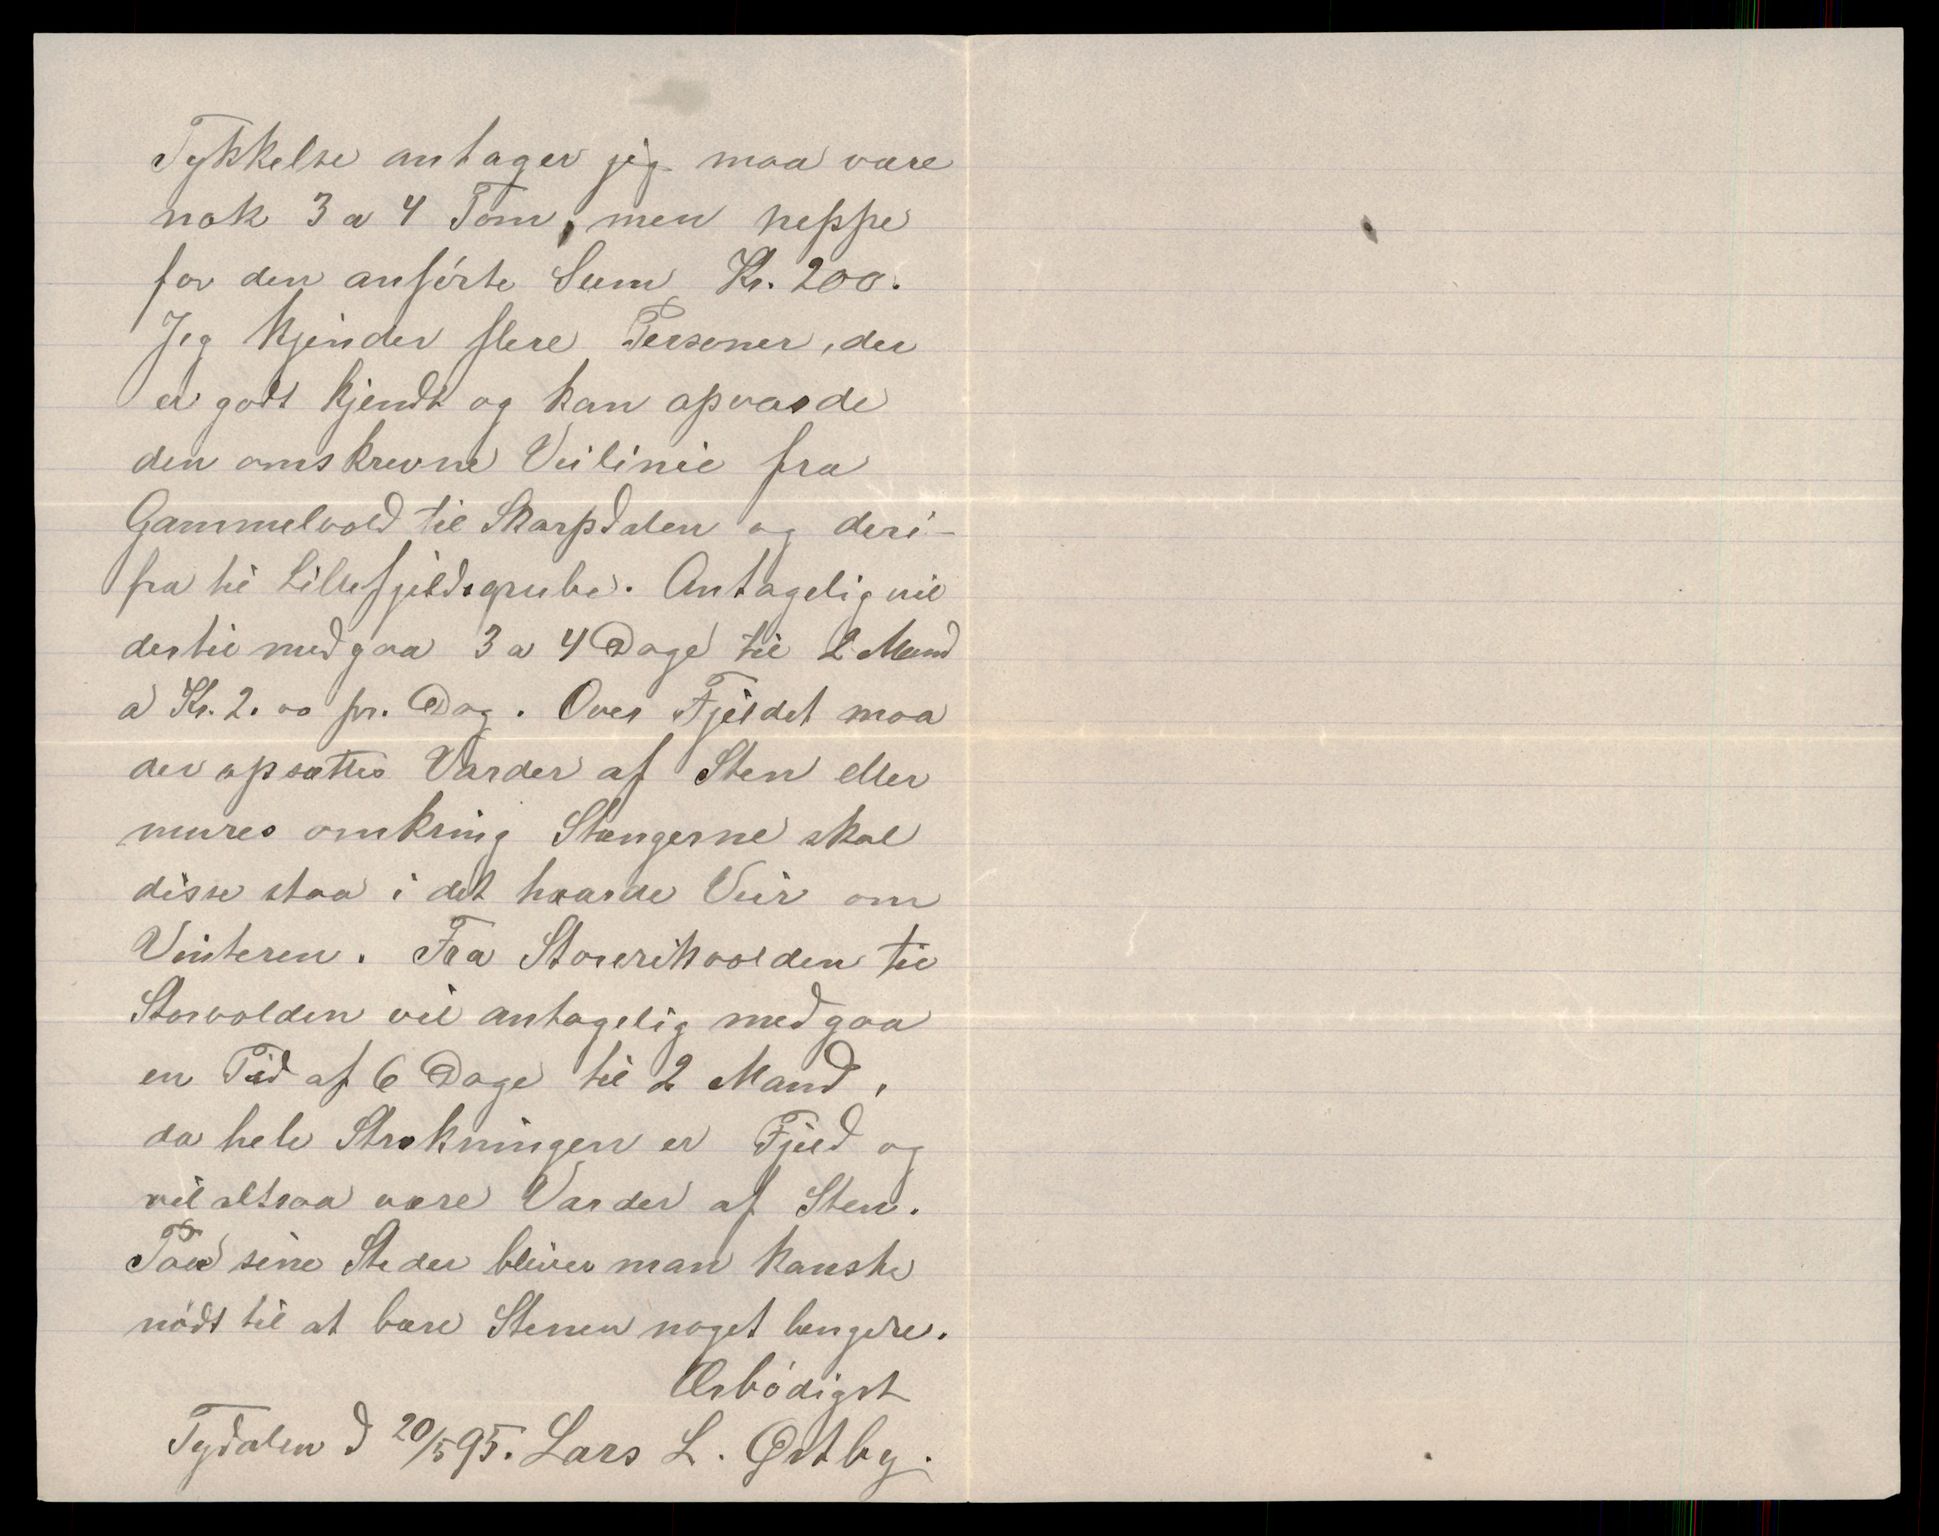 Tykkelse antager jeg maa være
nok 3 a 4 Tom, men neppe
for den anførte Sum Kr. 200.
Jeg kjender flere Personer, der
er godt kjendt og kan opvarde
den omskrevne Veilinie fra
Gammelvold til Skarpdalen og deri-
fra til Lillefjeldsgrube. Antagelig vil
dertil medgaa 3 a 4 Dage til 2 Mand
a Kr. 2.00 pr. Dag. Over Fjeldet maa
der opsættes Varder af Sten eller
mures omkring Stængerne skal
disse staa i det haarde Veir om
Vinteren. Fra Storerikvolden til
Storvolden vil antagelig medgaa
en Tid af 6 Dage til 2 Mand,
da hele Strækningen er Fjeld og
vil altsaa være Varder af Sten.
Paa sine Steder bliver man kanske
nødt til at bære Stenen noget længere.
Ærbødigst
Tydalen d 20/5 95. Lars L. Østby.